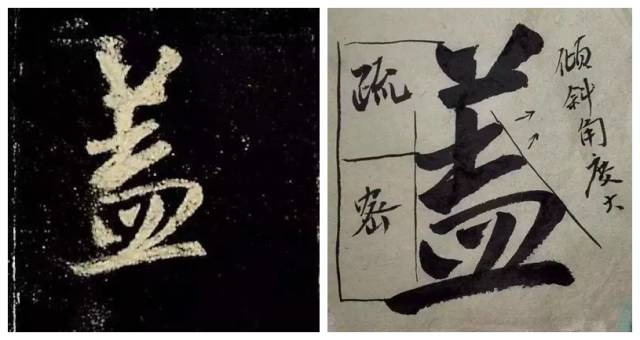 盖
盖
疏
密
倾斜角度大